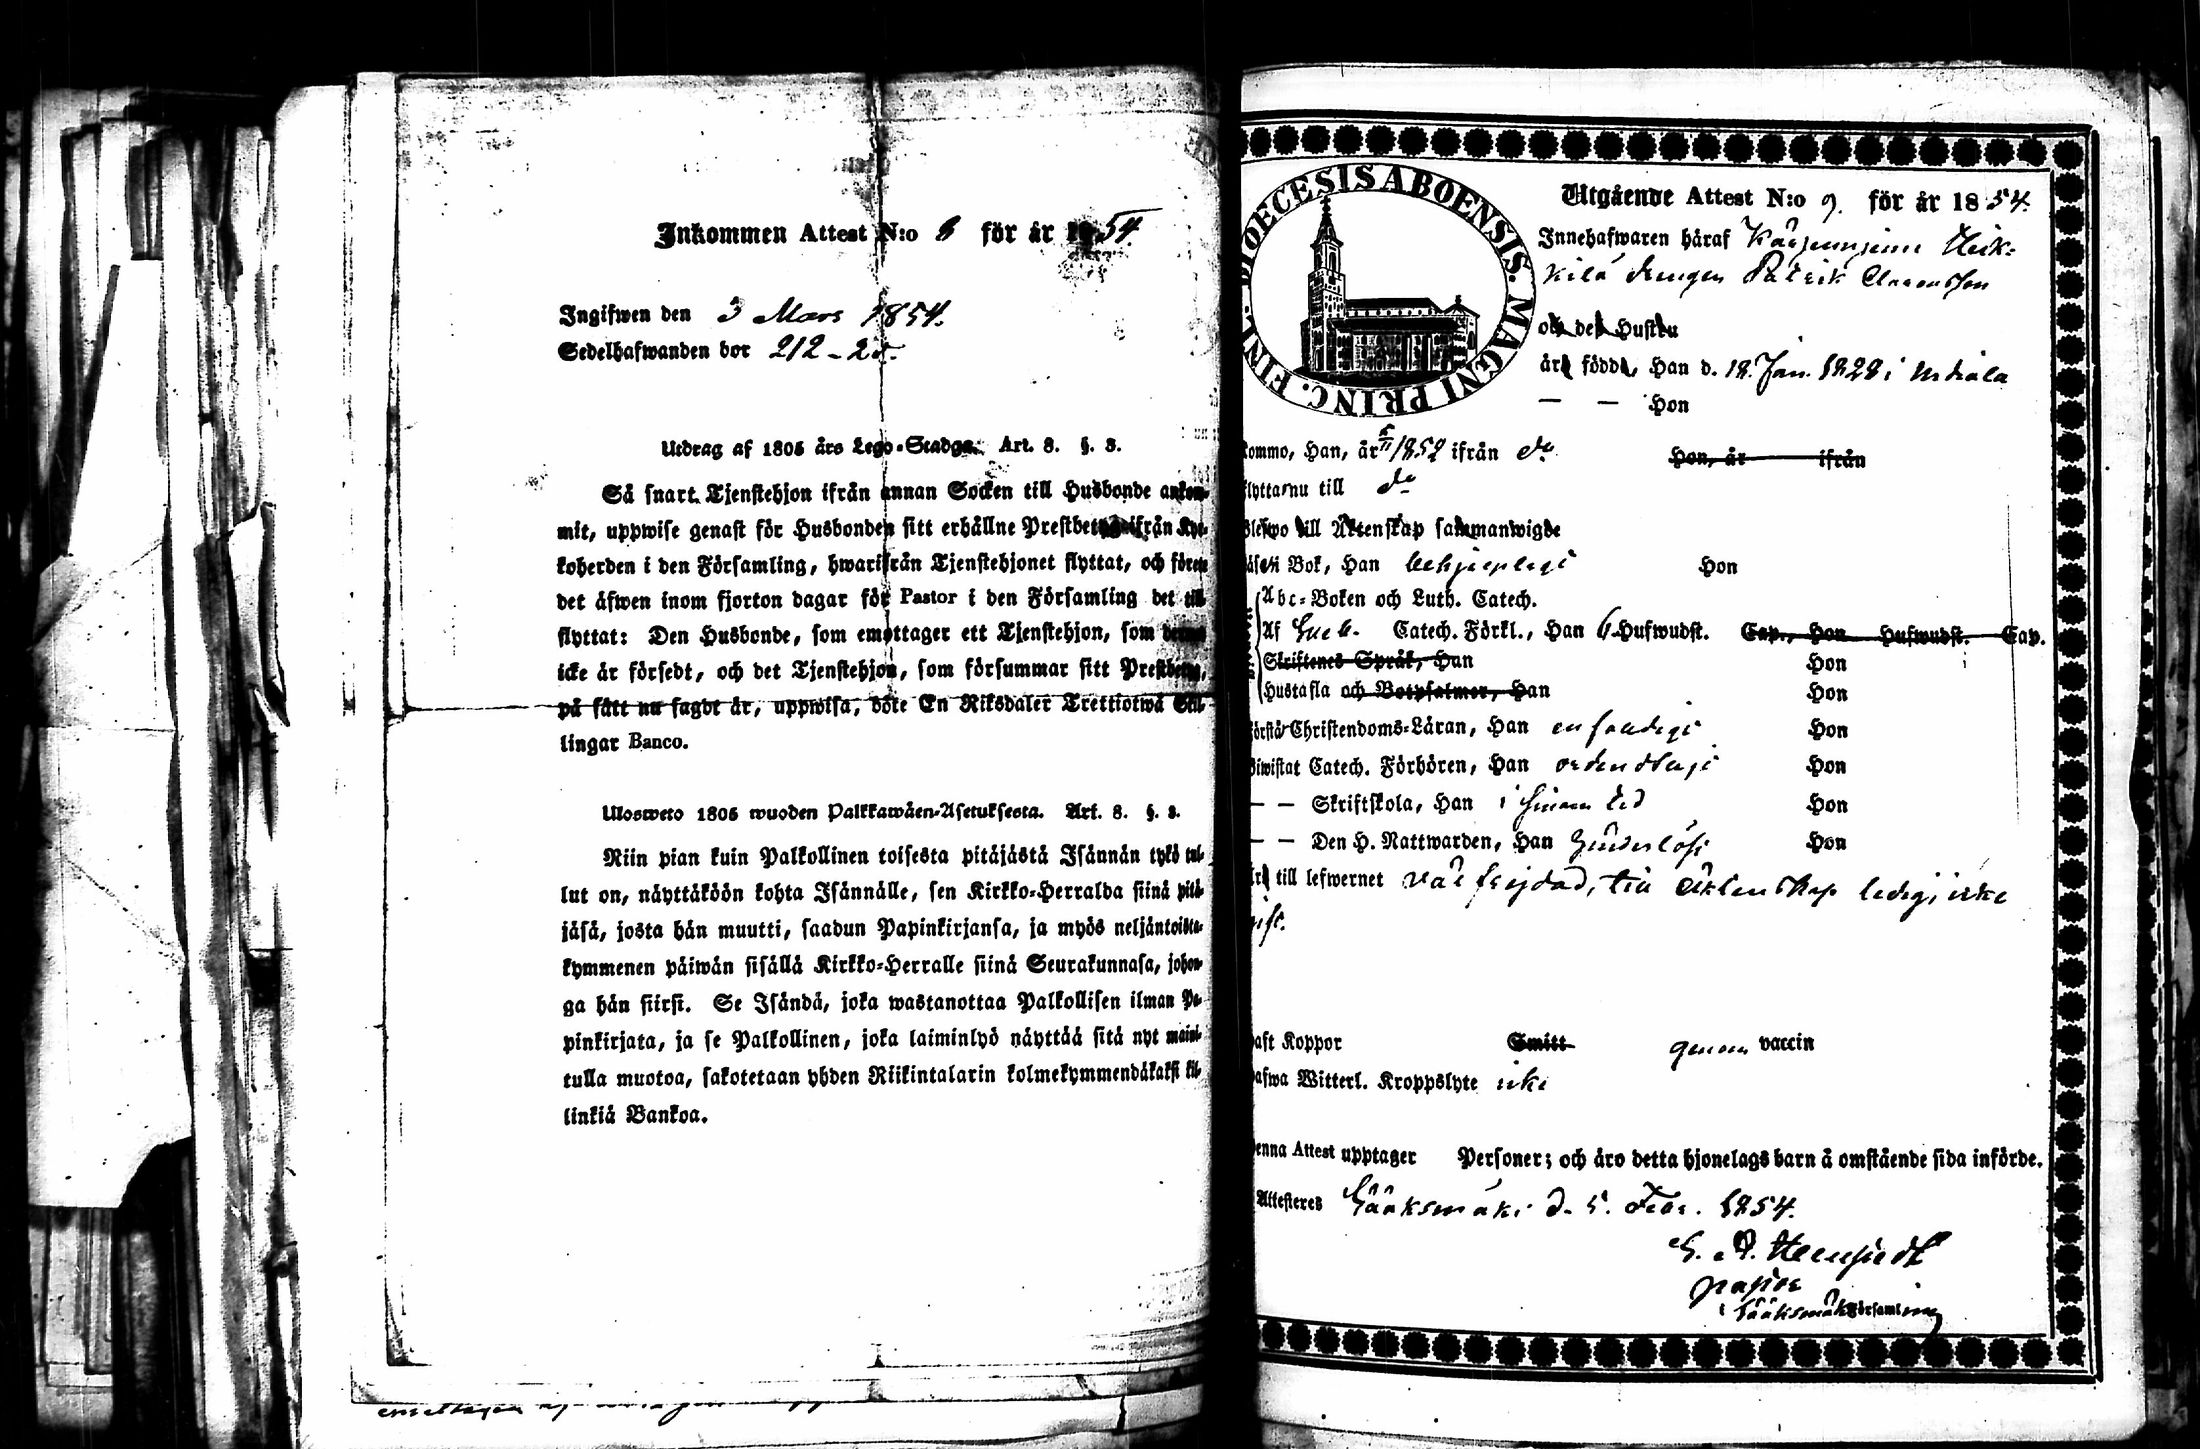 Inkommen Attest N:o 8 för år 1854.
Ingifwen den 3 Mars 1854.
Sedelhafwanden bor 212-25.
Utdrag af 1805 års Lego-Stadga. Art. 8. §. 3.
Så snart Tjenstehjon ifrån annan Socken till Husbonde ankom-
mit, uppwise genast för Husbonden sitt erhållne Prestbetyg ifrån Kyr-
koherden i den Församling, hwarifrån Tjenstehjonet flyttat, och förete
det äfwen inom fjorton dagar för Pastor i den Församling det till
flyttat: Den Husbonde, som emottager ett Tjenstehjon, som dermed
icke är försedt, och det Tjenstehjon, som försummar sitt Prestbetyg,
på sätt nu sagdt är, uppwisa, böte En Riksdaler Trettiotwå Skil-
lingar Banco.
Ulosweto 1805 wuoden Palkkawäen-Asetuksesta. Art. 8. §. 3.
Niin pian kuin Palkollinen toisesta pitäjästä Isännän tykö tul-
lut on, näyttäköön kohta Isännälle, sen Kirkko-Herralda siinä pitä-
jäsä, josta hän muutti, saadun Papinkirjansa, ja myös neljäntoista-
kymmenen päiwän sisällä Kirkko-Herralle siinä Seurakunnasa, johon-
ga hän siirsi. Se Isändä, joka wastanottaa Palkollisen ilman Pa-
pinkirjata, ja se Palkollinen, joka laiminlyö näyttää sitä nyt maini-
tulla muotoa, sakotetaan yhden Riikintalarin kolmekymmendäkaksi kil-
linkiä Bankoa.
DIOECESIS ABOENSIS. MAGNI PRINC. FINL.
Utgående Attest N:o 9. för år 1854.
Innehafwaren häraf Heik-
kilä drengen Patrik
och des Hustru
äro födde, Han d. 18. Jan. 1828 i Urdiala
— — Hon
kommo, Han, år 1852 ifrån do Hon, år ifrån
flytta nu till do
blefwo till Äktenskap sammanwigde
läsa i Bok, Han behjelpligt Hon
Abc-Boken och Luth. Catech.
Af Catech. Förkl., Han 6 Hufwudst. Cap., Hon Hufwudst. Cap.
Skriftenes Språk, Han Hon
Hustafla och Botpsalmer, Han Hon
förstå Christendoms-Läran, Han enfaldigt Hon
biwistat Catech. Förhören, Han ordentligt Hon
— — Skriftskola, Han i sinom tid Hon
— — Den H. Nattwarden, Han hinderlöst Hon
äro till lefwernet wäl frejdad, till äktenskap ledig, icke
gift.
haft Koppor Smitt genom vaccin
hafwa Witterl. Kroppslyte icke
Denna Attest upptager Personer; och äro detta hjonelags barn å omstående sida införde.
Attesteres Sääksmäki d. 5. Febr. 1854.
pastor
i Sääksmäki Församling